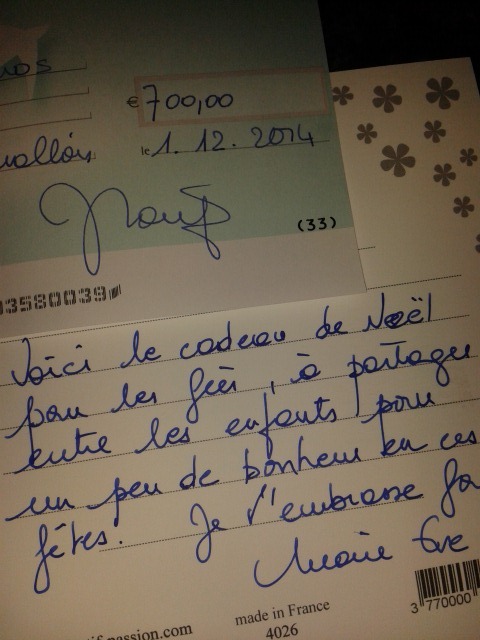 € 700,00
le 1. 12. 2014
(33)
Voici le cadeau de Noël
pour les fées, à partager
entre les enfants pour
un peu de bonheur en ces
fêtes. Je t'embrasse
Marie Eve
passion.com
made in France
4026
3 770000